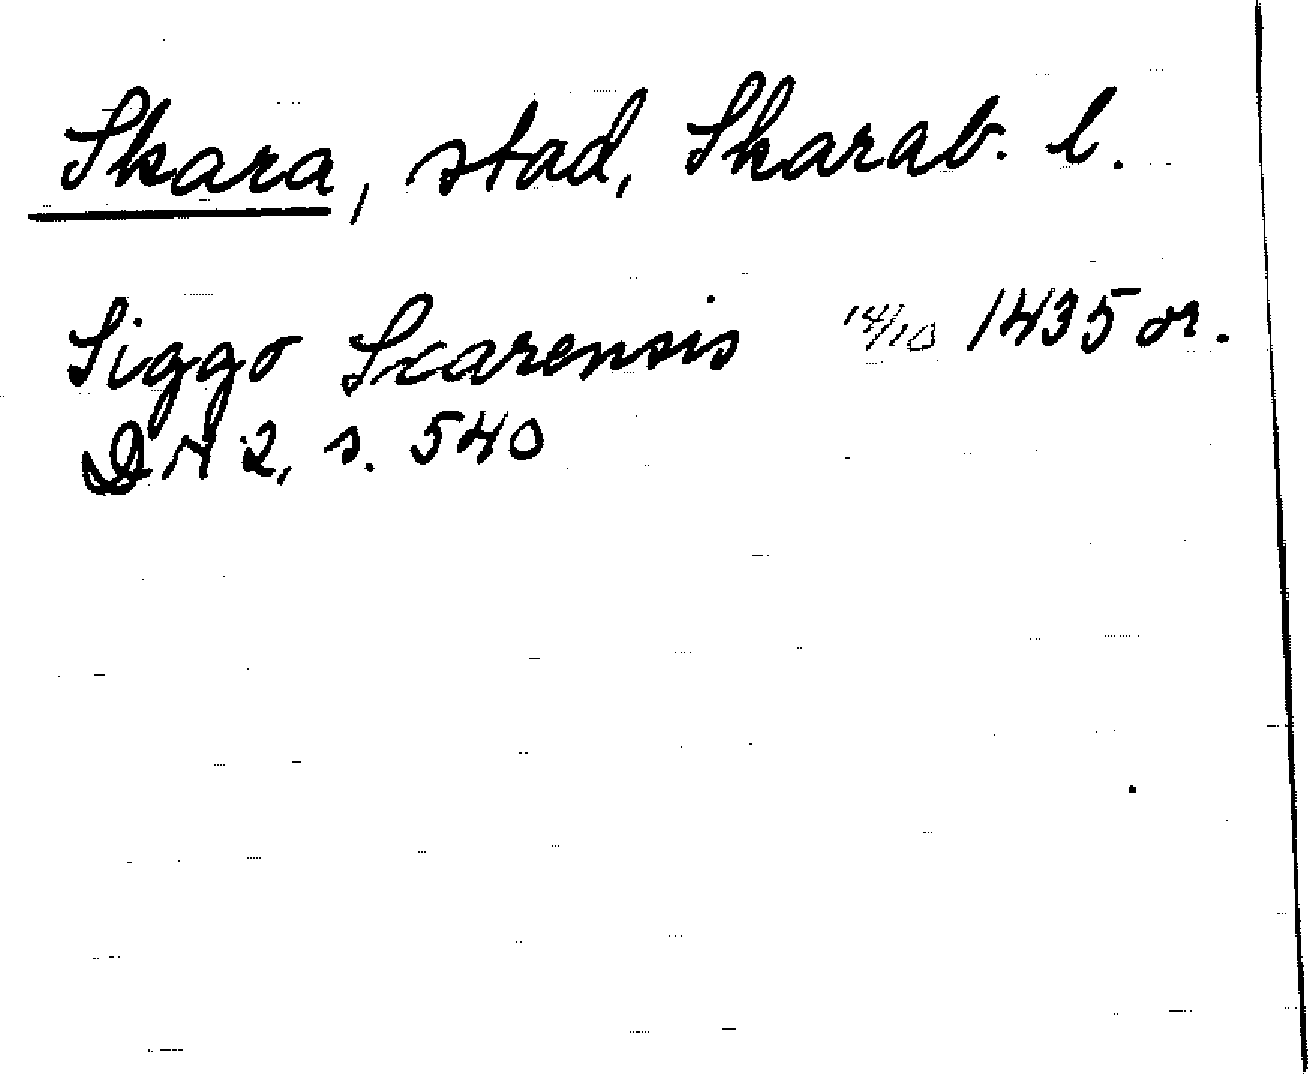 Skara, stad, Skarab. l.
Siggo Scarensis 14/10 1435 or.
DN 2, s. 540